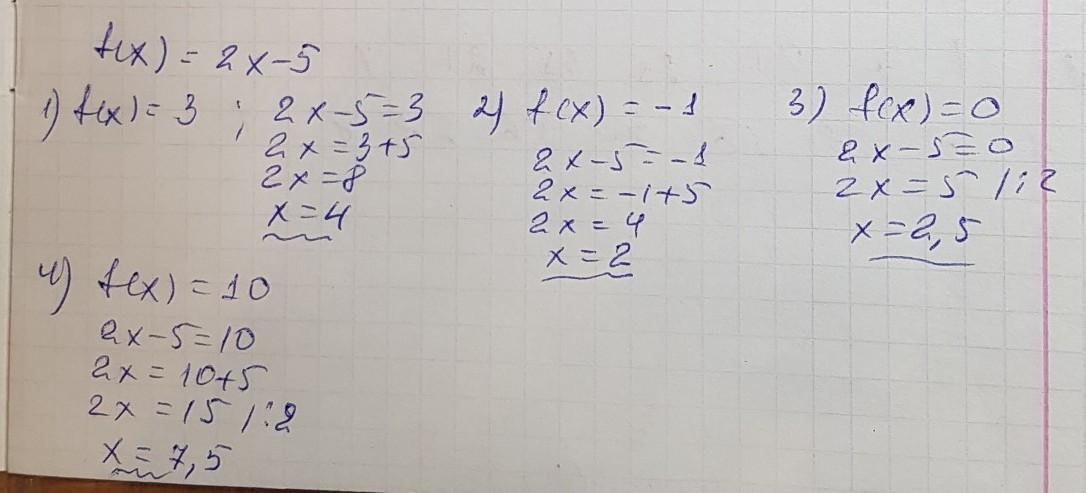 f(x) = 2x-5
1) f(x) = 3 ; 2x-5=3
2x=3+5
2x=8
x=4
2) f(x) = -1
2x-5=-1
2x=-1+5
2x=4
x=2
3) f(x)=0
2x-5=0
2x=5 /:2
x=2,5
4) f(x) = 10
2x-5=10
2x=10+5
2x=15 /:2
x=7,5